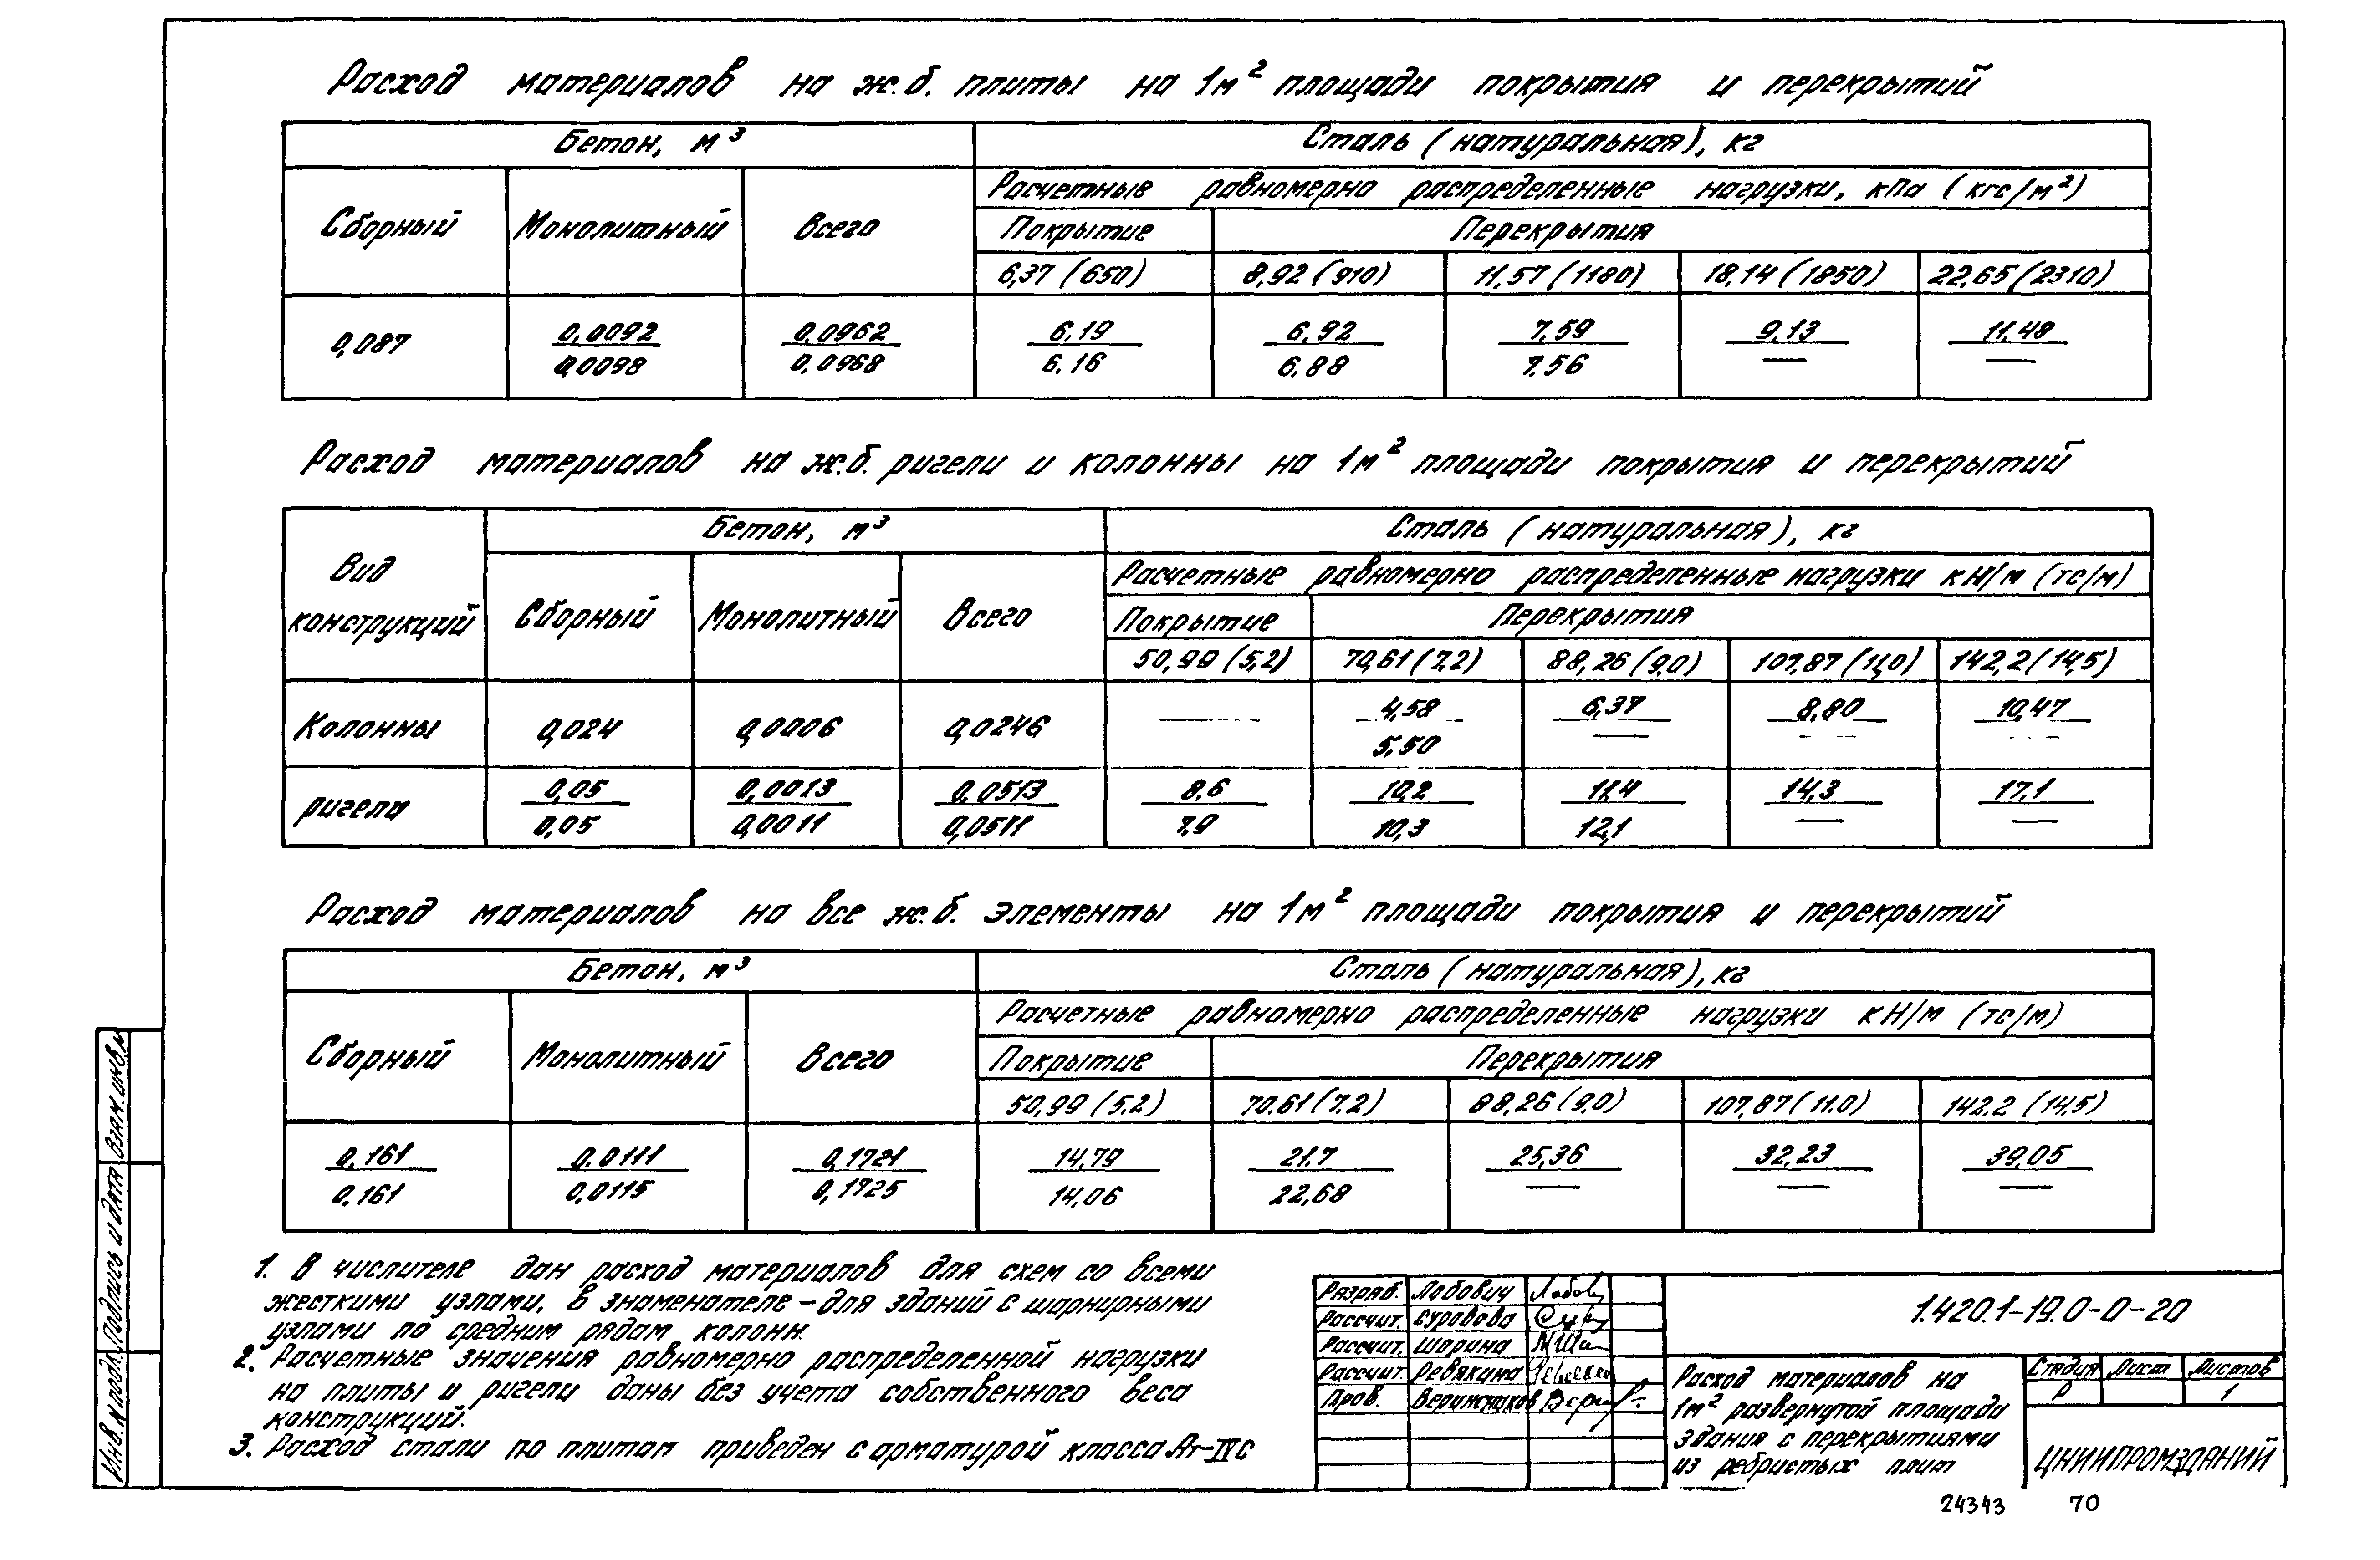 Расход материалов на ж.б. плиты на 1м² площади покрытия и перекрытий
Бетон, м³
Сталь (натуральная), кг
Сборный
Монолитный
Всего
Расчетные равномерно распределенные нагрузки, кПа (кгс/м²)
Покрытие
Перекрытия
6,37 (650)
8,92 (910)
11,57 (1180)
18,14 (1850)
22,65 (2310)
0,087
0,0092
0,0098
0,0962
0,0968
6.19
6.16
6,92
6,88
7,59
7,56
9,13
—
11,48
—
Расход материалов на ж.б. ригели и колонны на 1м² площади покрытия и перекрытий
Вид
конструкций
Бетон, м³
Сталь (натуральная), кг
Сборный
Монолитный
Всего
Расчетные равномерно распределенные нагрузки кН/м (тс/м)
Покрытие
Перекрытия
50,99 (5,2)
70,61 (7,2)
88,26 (9,0)
107,87 (11,0)
142,2 (14,5)
Колонны
0,024
0,0006
0,0246
—
4,58
5,50
6,37
—
8,80
—
10,47
—
ригели
0,05
0,05
0,0013
0,0011
0,0513
0,0511
8,6
7,9
10,2
10,3
11,4
12,1
14,3
—
17,1
—
Расход материалов на все ж.б. элементы на 1м² площади покрытия и перекрытий
Бетон, м³
Сталь (натуральная), кг
Сборный
Монолитный
Всего
Расчетные равномерно распределенные нагрузки кН/м (тс/м)
Покрытие
Перекрытия
50,99 (5.2)
70.61 (7.2)
88,26 (9,0)
107,87 (11.0)
142.2 (14,5)
0,161
0.161
0.0111
0,0115
0,1721
0,1725
14,79
14,06
21.7
22,68
25,36
—
32,23
—
39,05
—
1. В числителе дан расход материалов для схем со всеми
жесткими узлами, в знаменателе – для зданий с шарнирными
узлами по средним рядам колонн.
2. Расчетные значения равномерно распределенной нагрузки
на плиты и ригели даны без учета собственного веса
конструкций.
3. Расход стали по плитам приведен с арматурой класса Ат-IVС
Разраб. Лабович
Рассчит. Суровова
Рассчит. Шорина
Рассчит. Ревякина
Пров.
1.420.1-19.0-0-20
Расход материалов на
1м² развернутой площади
здания с перекрытиями
из ребристых плит
Стадия Лист Листов
Р 1
ЦНИИПРОМЗДАНИЙ
Инв. № подл. Подпись и дата Взам. инв. №
24343 70